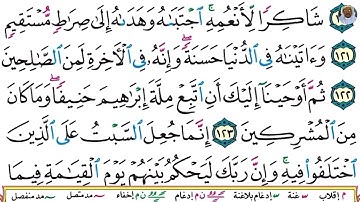 شَاكِرًا لِّأَنْعُمِهِ ۚ ٱجْتَبَىٰهُ وَهَدَىٰهُ إِلَىٰ صِرَٰطٍ مُّسْتَقِيمٍ
١٢١ وَءَاتَيْنَٰهُ فِى ٱلدُّنْيَا حَسَنَةً ۖ وَإِنَّهُۥ فِى ٱلْءَاخِرَةِ لَمِنَ ٱلصَّٰلِحِينَ
١٢٢ ثُمَّ أَوْحَيْنَآ إِلَيْكَ أَنِ ٱتَّبِعْ مِلَّةَ إِبْرَٰهِيمَ حَنِيفًا ۖ وَمَا كَانَ
مِنَ ٱلْمُشْرِكِينَ ١٢٣ إِنَّمَا جُعِلَ ٱلسَّبْتُ عَلَى ٱلَّذِينَ
ٱخْتَلَفُوا۟ فِيهِ ۚ وَإِنَّ رَبَّكَ لَيَحْكُمُ بَيْنَهُمْ يَوْمَ ٱلْقِيَٰمَةِ فِيمَا
م إقلاب س غنة س إدغام بلاغنة ن م إدغام ن م إخفاء مد متصل مد منفصل